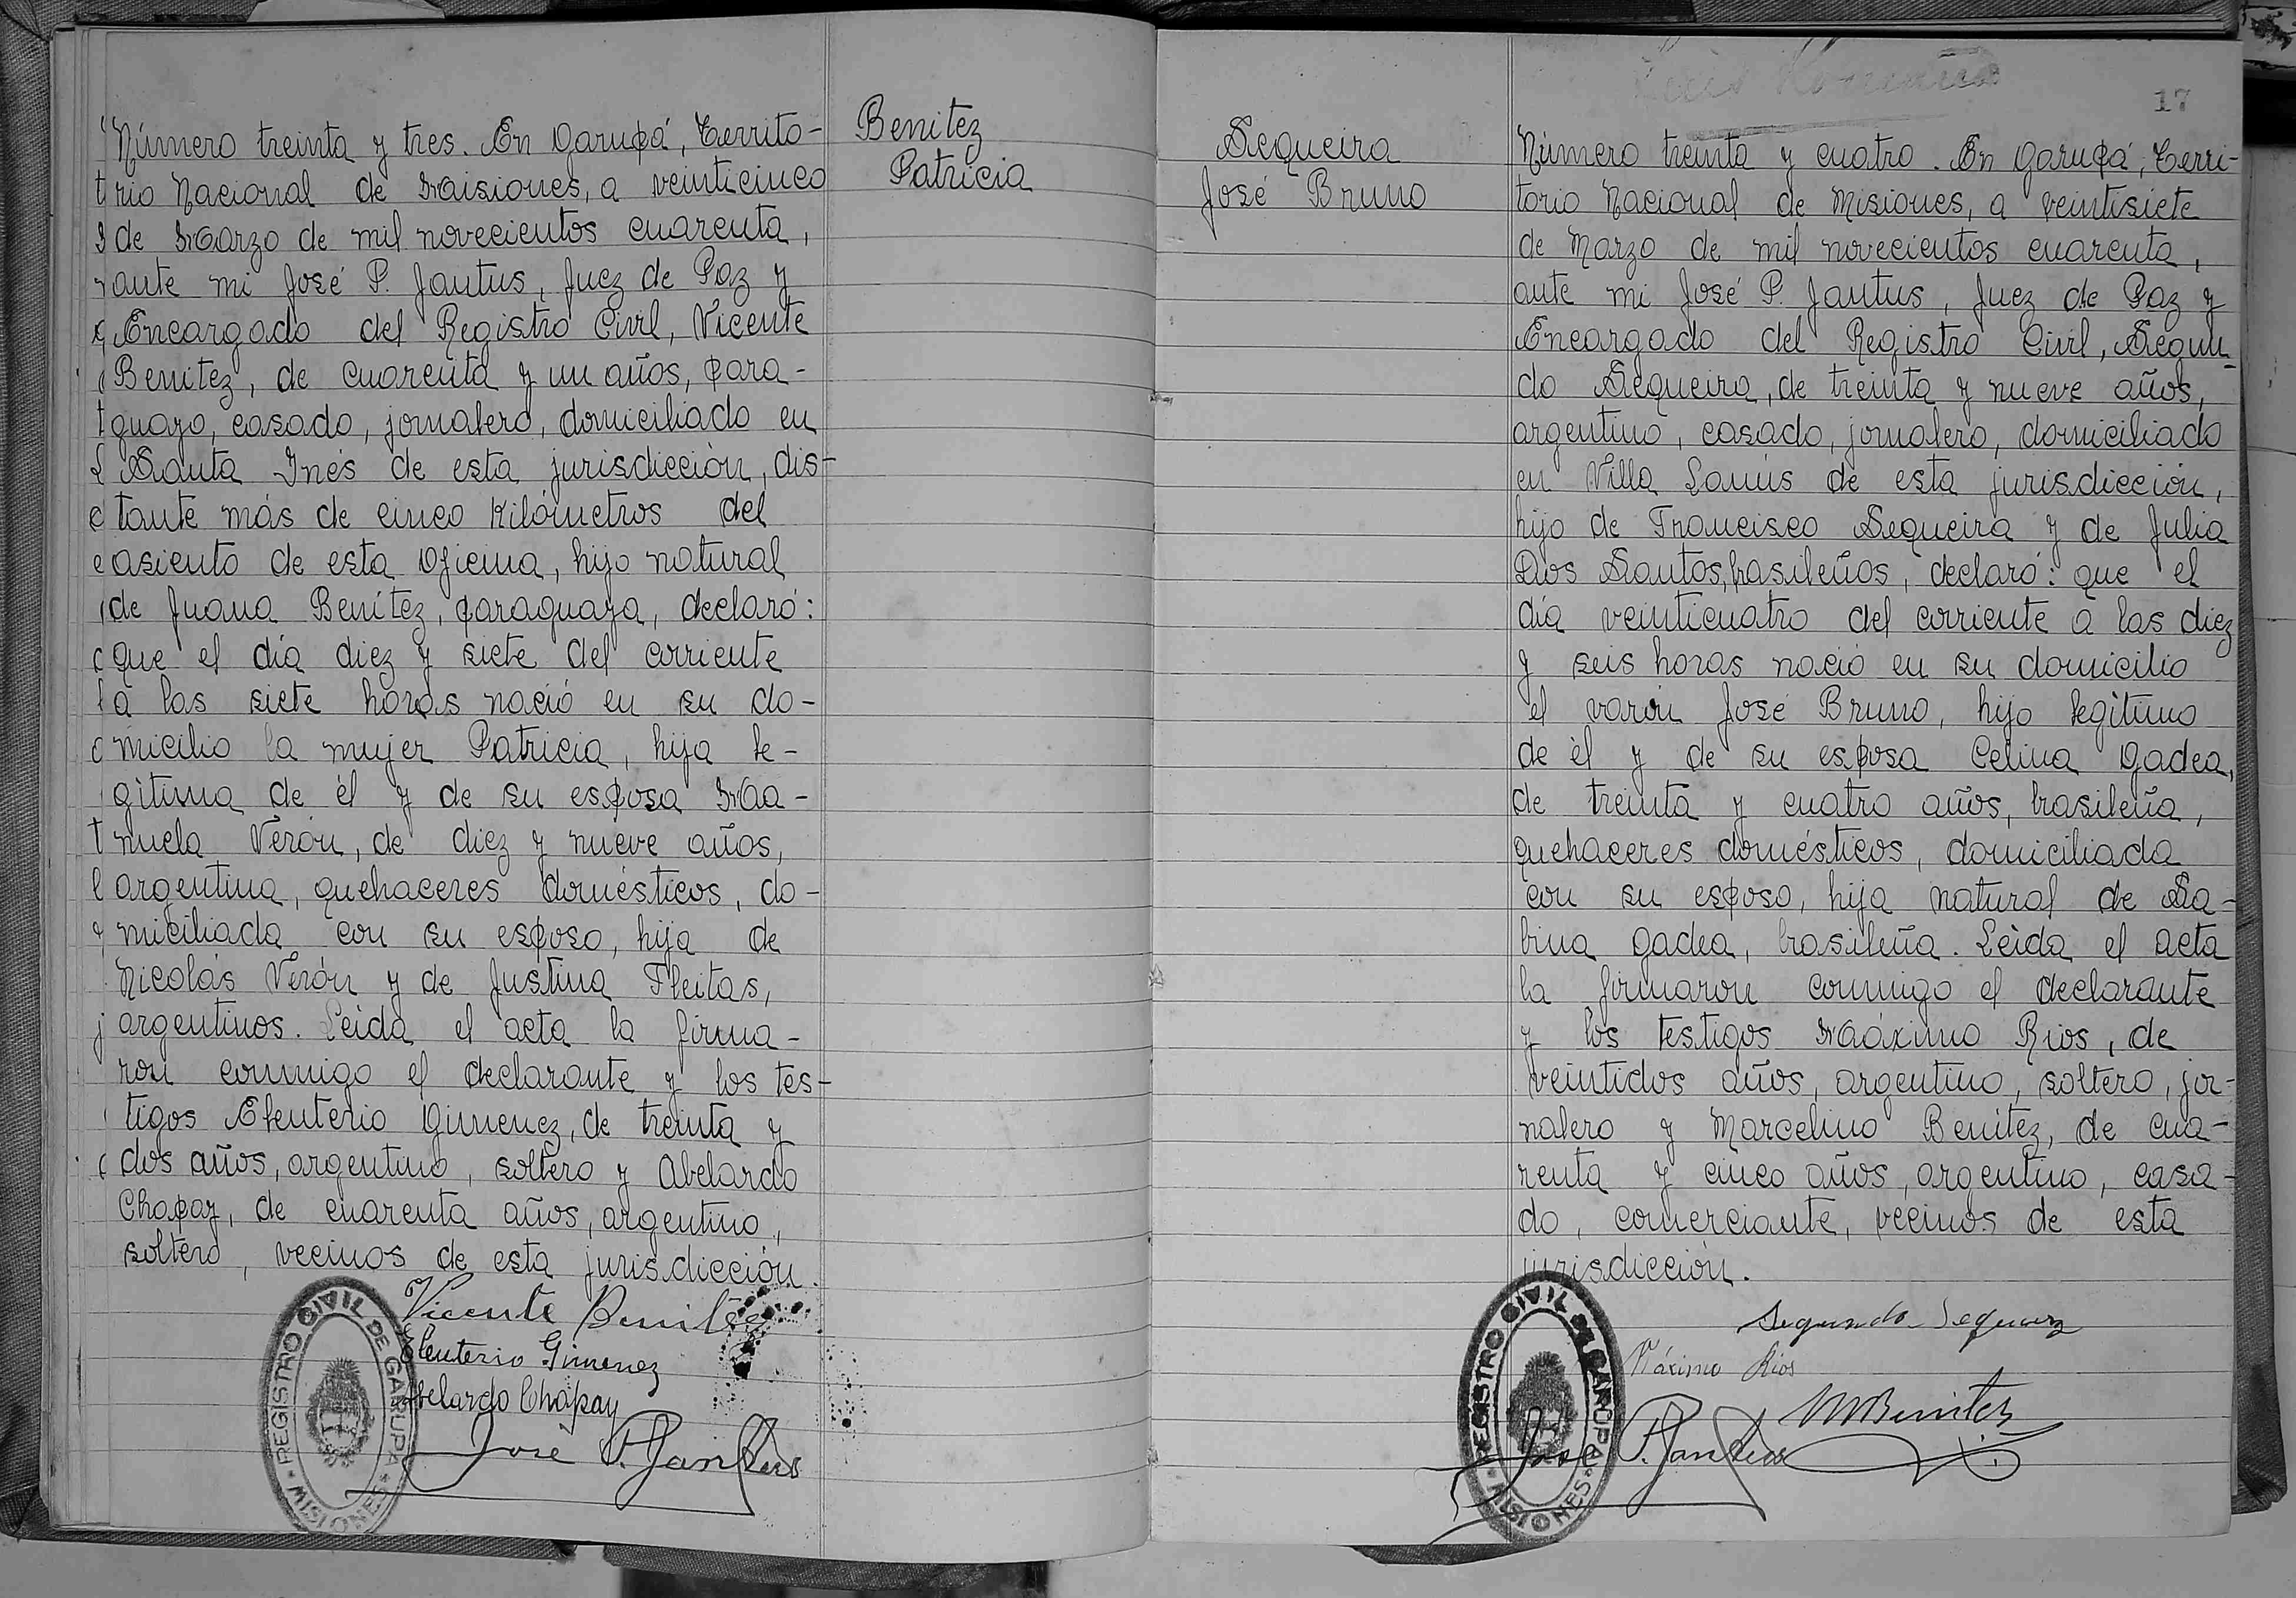 Número treinta y tres. En Garupá, Territo-
rio Nacional de Maisiones, a veinticinco
de Marzo de mil novecientos cuarenta,
ante mi José P. Jantus, Juez de Paz y
Encargado del Registro Civil, Vicente
Benitez, de cuarenta y un años, para-
guayo, casado, jornalero, domiciliado en
Santa Inés de esta jurisdicción, dis-
tante más de cinco Kilómetros del
asiento de esta Oficina, hijo natural
de Juana Benítez, paraguaya, declaró:
que el día diez y siete del corriente
a las siete horas nació en su do-
micilio la mujer Patricia, hija le-
gitima de él y de su esposa Ma-
nuela Verón, de diez y nueve años,
argentina, quehaceres domésticos, do-
miciliada con su esposo, hija de
Nicolás Verón y de Justina Fleitas,
argentinos. Leida el acta la firma-
ron conmigo el declarante y los tes-
tigos Eleuterio Gimenez, de treinta y
dos años, argentino, soltero y Abelardo
Chapay, de cuarenta años, argentino,
soltero, vecinos de esta jurisdicción.
Vicente Benitez
Eleuterio Gimenez
Abelardo Chapay
José P. Jantus
REGISTRO CIVIL DE GARUPA
MISIONES
Benitez
Patricia
Sequeira
José Bruno
17
Número treinta y cuatro. En Garupá, Terri-
torio Nacional de Misiones, a veintisiete
de Marzo de mil novecientos cuarenta,
ante mi José P. Jantus, Juez de Paz y
Encargado del Registro Civil, Segun-
do Sequeira, de treinta y nueve años,
argentino, casado, jornalero, domiciliado
en Villa Lanús de esta jurisdicción,
hijo de Francisco Sequeira y de Julia
Dos Santos, brasileños, declaró: que el
día veinticuatro del corriente a las diez
y seis horas nació en su domicilio
el varón José Bruno, hijo legitimo
de èl y de su esposa Celina Gadea,
de treinta y cuatro años, brasileña,
quehaceres domésticos, domiciliada
con su esposo, hija natural de Sa-
bina Gadea, brasileña. Leìda el acta
la firmaron conmigo el declarante
y los testigos Máximo Rios, de
veintidos años, argentino, soltero, jor-
nalero y Marcelino Benitez, de cua-
renta y cinco años, argentino, casa-
do, comerciante, vecinos de esta
jurisdicción.
Segundo Sequeira
Máximo Rios
M Benitez
José P. Jantus
REGISTRO CIVIL DE GARUPA
MISIONES